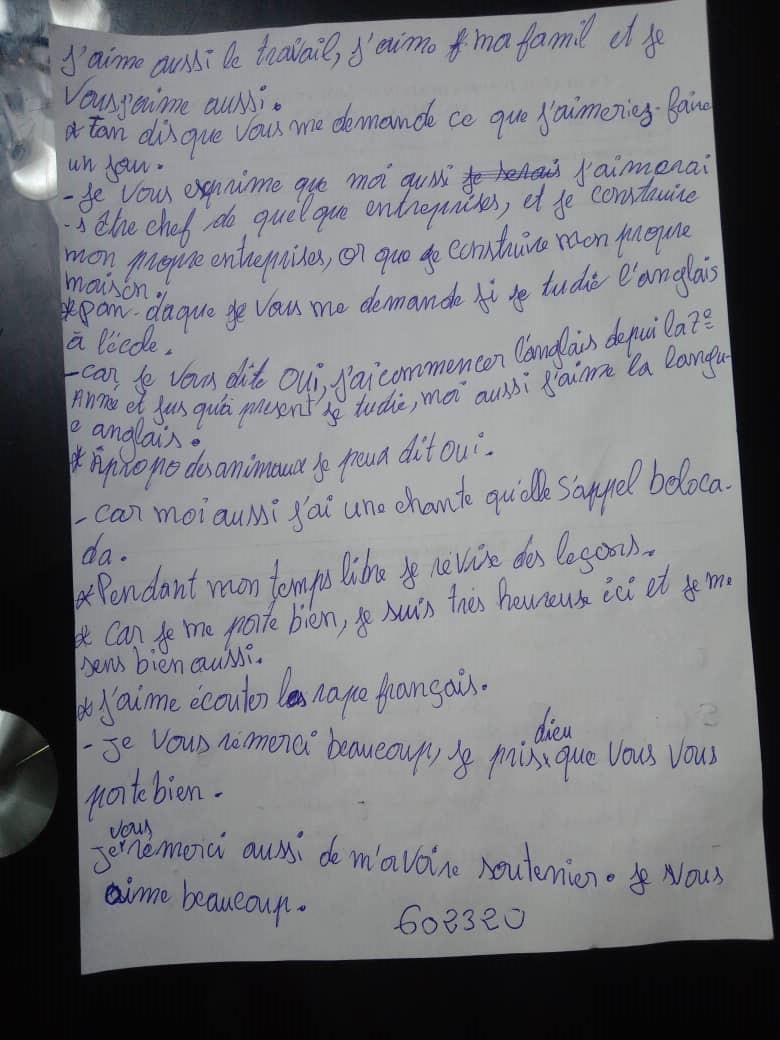 J'aime aussi le travail, j'aime ma famil et je
vous j'aime aussi.
* Tan disque vous me demande ce que j'aimeriez-faire
un jour.
- Je vous exprime que moi aussi je serais j'aimerai
-s être chef de quelque entreprises, et je construire
mon propre entreprises, or que je construire mon propre
maison.
*pan-daque je vous me demande si je tudie l'anglais
à l'école.
- car je vous dite oui, j'ai commencer l'anglais depui la 7e
Anné et jusqu'à present je tudie, moi aussi j'aime la langu-
e anglais.
* Apropo des animaux je peux dit oui.
- car moi aussi j'ai une chante qu'elle s'appel boloca-
da.
* Pendant mon temps libre je révise des leçons.
* car je me porte bien, je suis très heureuse ici et je me
sens bien aussi.
* J'aime écouter les rape français.
dieu
- Je vous rémerci beaucoup, je pris, que vous vous
porte bien.
vous
Je rémerci aussi de m'avoire soutenier. Je vous
aime beaucoup.
602320